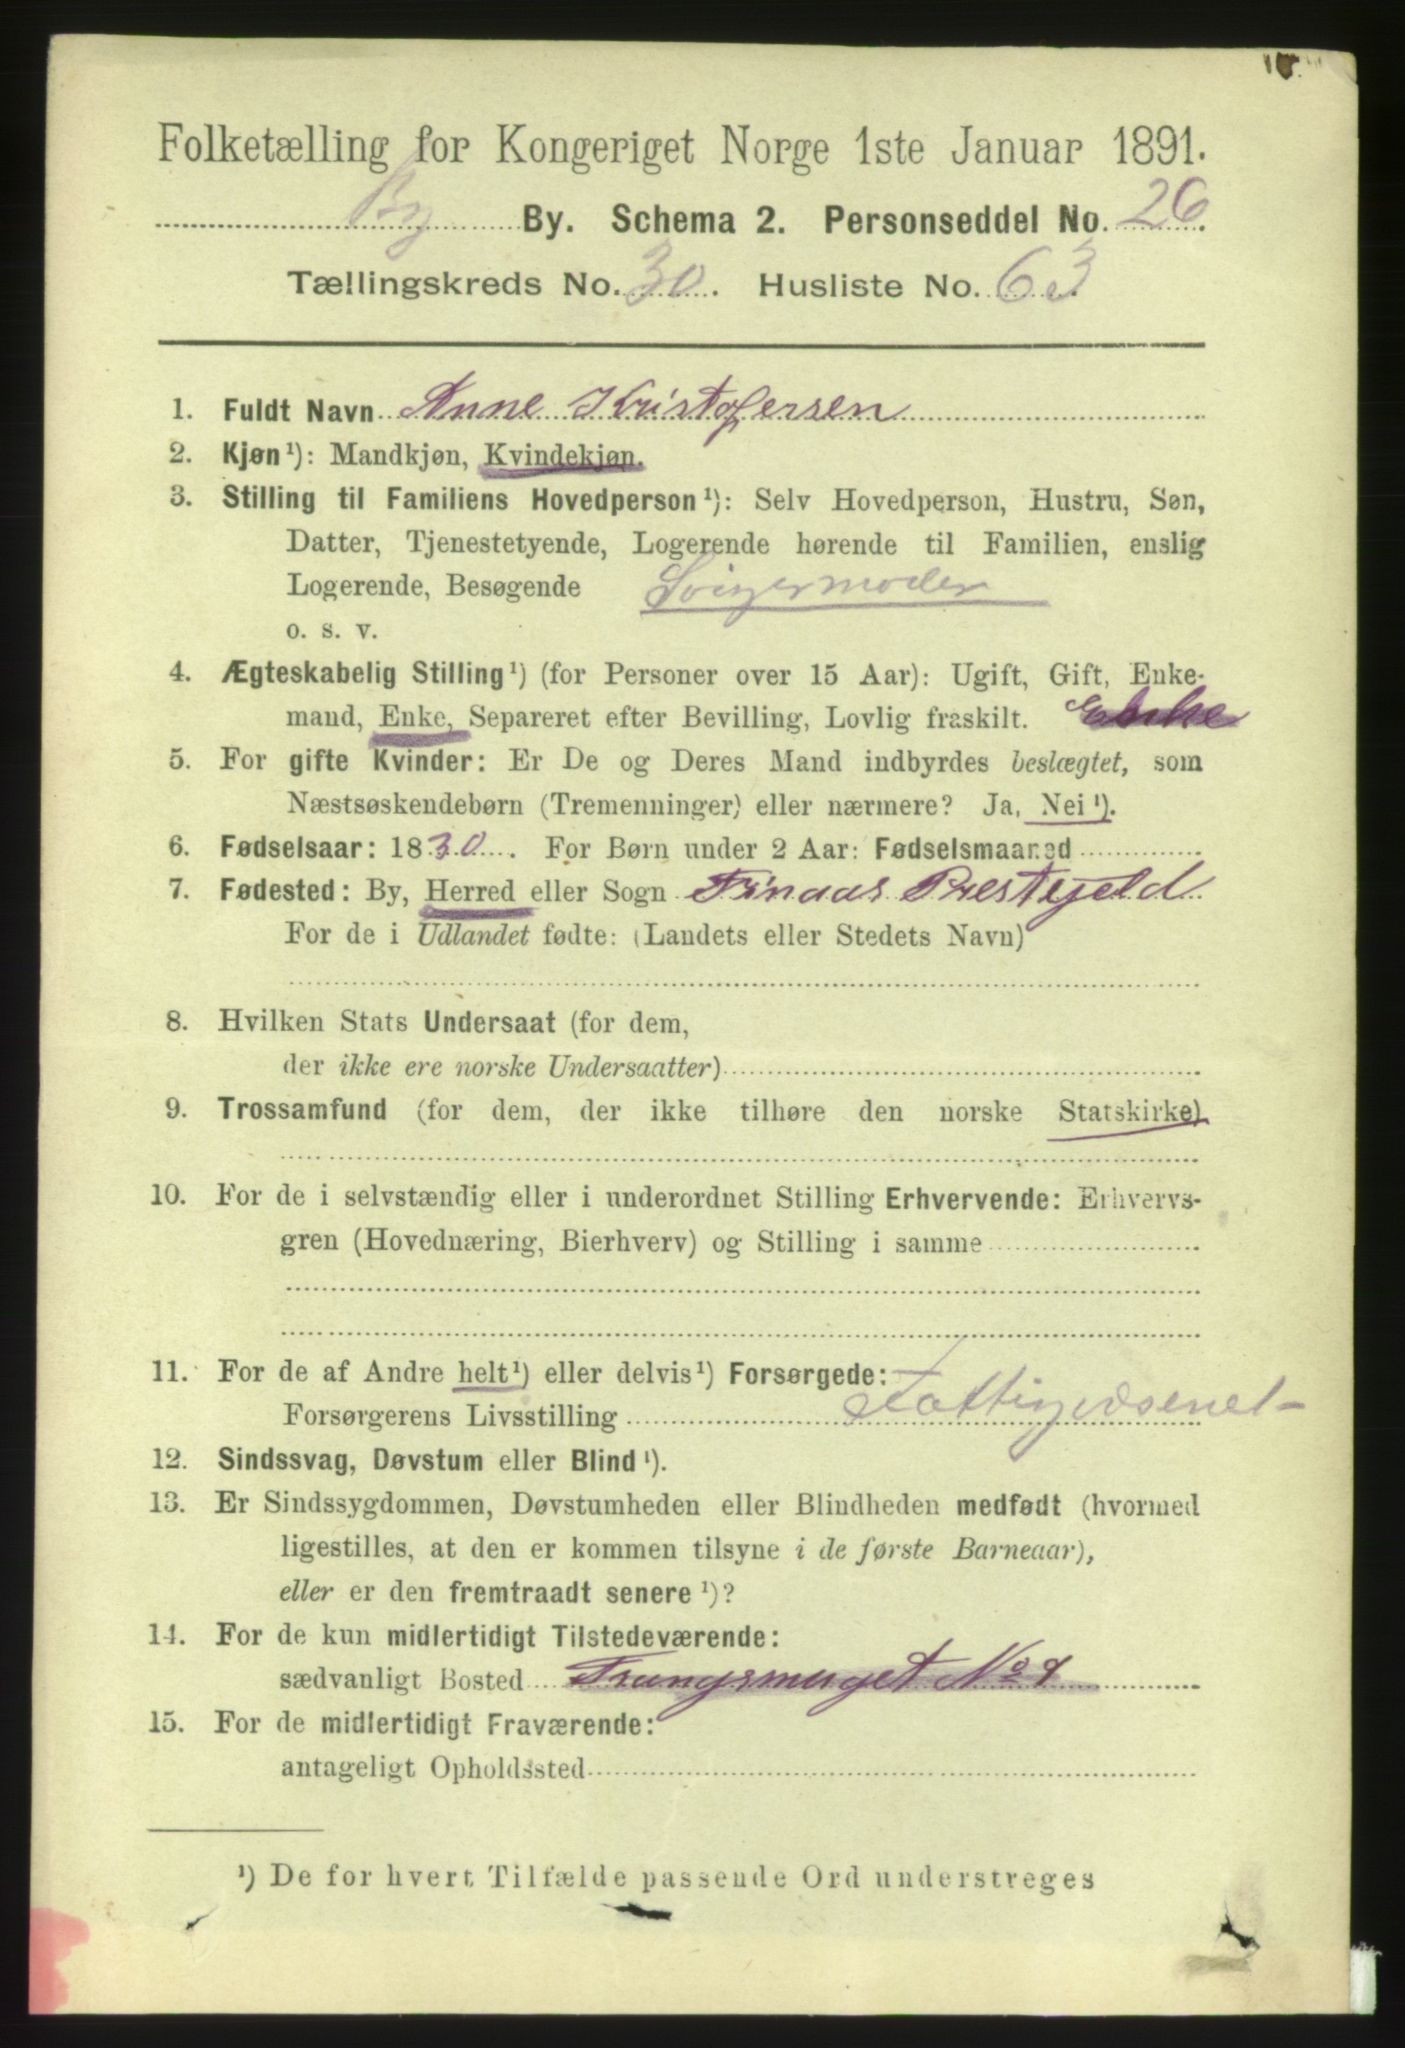 Folketælling for Kongeriget Norge 1ste Januar 1891.
By By. Schema 2. Personseddel No. 26.
Tællingskreds No. 30. Husliste No. 63.
1. Fuldt Navn Anne Kristofersen
2. Kjøn¹): Mandkjøn, Kvindekjøn.
3. Stilling til Familiens Hovedperson¹): Selv Hovedperson, Hustru, Søn,
Datter, Tjenestetyende, Logerende hørende til Familien, enslig
Logerende, Besøgende Svigermoder
o. s. v.
4. Ægteskabelig Stilling¹) (for Personer over 15 Aar): Ugift, Gift, Enke-
mand, Enke, Separeret efter Bevilling, Lovlig fraskilt. Enke
5. For gifte Kvinder: Er De og Deres Mand indbyrdes beslægtet, som
Næstsøskendebørn (Tremenninger) eller nærmere? Ja, Nei¹).
6. Fødselsaar: 1830. For Børn under 2 Aar: Fødselsmaaned
7. Fødested: By, Herred eller Sogn Finaas Prestegeld
For de i Udlandet fødte: (Landets eller Stedets Navn)
8. Hvilken Stats Undersaat (for dem,
der ikke ere norske Undersaatter)
9. Trossamfund (for dem, der ikke tilhøre den norske Statskirke)
10. For de i selvstændig eller i underordnet Stilling Erhvervende: Erhvervs-
gren (Hovednæring, Bierhverv) og Stilling i samme
11. For de af Andre helt¹) eller delvis¹) Forsørgede:
Forsørgerens Livsstilling Fattigvæsenet-
12. Sindssvag, Døvstum eller Blind¹).
13. Er Sindssygdommen, Døvstumheden eller Blindheden medfødt (hvormed
ligestilles, at den er kommen tilsyne i de første Barneaar),
eller er den fremtraadt senere¹)?
14. For de kun midlertidigt Tilstedeværende:
sædvanligt Bosted No
15. For de midlertidigt Fraværende:
antageligt Opholdssted
¹) De for hvert Tilfælde passende Ord understreges